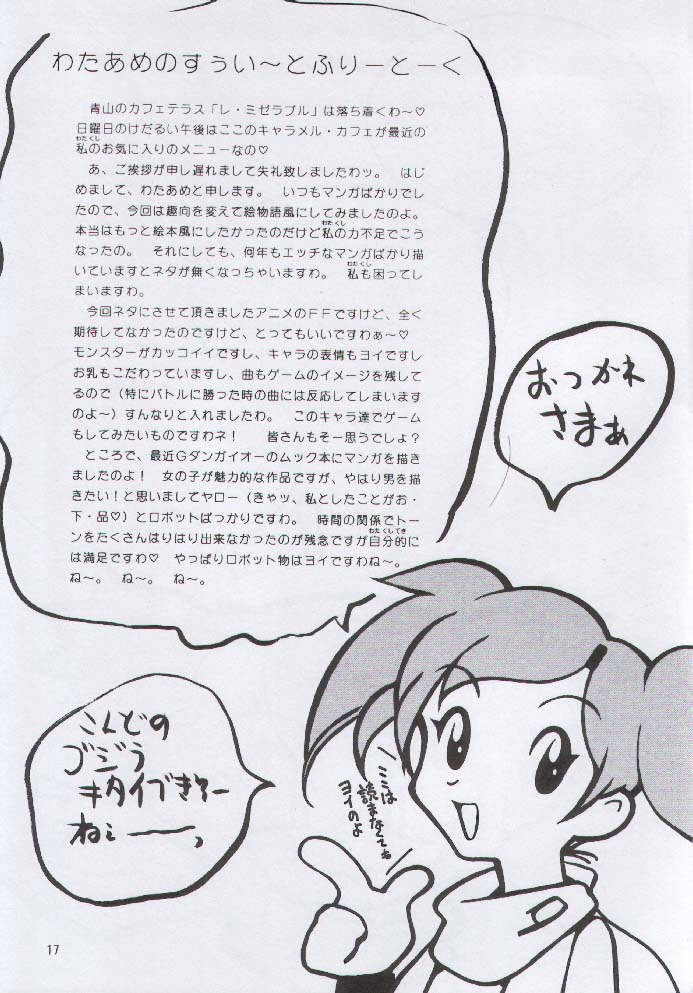 わたあめのすぅい～とふりーとーく
青山のカフェテラス「レ・ミゼラブル」は落ち着くわ～♡
日曜日のけだるい午後はここのキャラメル・カフェが最近の
わたくし
私のお気に入りのメニューなの♡
あ、ご挨拶が申し遅れまして失礼致しましたわッ。　はじ
めまして、わたあめと申します。　いつもマンガばかりでし
たので、今回は趣向を変えて絵物語風にしてみましたのよ。
わたくし
本当はもっと絵本風にしたかったのだけど私の力不足でこう
なったの。　それにしても、何年もエッチなマンガばかり描
わたくし
いていますとネタが無くなっちゃいますわ。　私も困ってし
まいますわ。
今回ネタにさせて頂きましたアニメのＦＦですけど、全く
期待してなかったのですけど、とってもいいですわぁ～♡
モンスターがカッコイイですし、キャラの表情もヨイですし
お乳もこだわっていますし、曲もゲームのイメージを残して
るので（特にバトルに勝った時の曲には反応してしまいます
のよ～）すんなりと入れましたわ。　このキャラ達でゲーム
もしてみたいものですわネ！　　皆さんもそー思うでしょ？
ところで、最近Ｇダンガイオーのムック本にマンガを描き
ましたのよ！　女の子が魅力的な作品ですが、やはり男を描
きたい！と思いましてヤロー（きゃッ、私としたことがお・
下・品♡）とロボットばっかりですわ。　時間の関係でトー
わたくしてき
ンをたくさんはりはり出来なかったのが残念ですが自分的に
は満足ですわ♡　やっぱりロボット物はヨイですわね～。
ね～。　ね～。　ね～。
おつかれ
さまぁ
こんどの
ゴジラ
キタイブキ?ー
ねぇ――っ
ここは
読まなくても
ヨイのよ
17